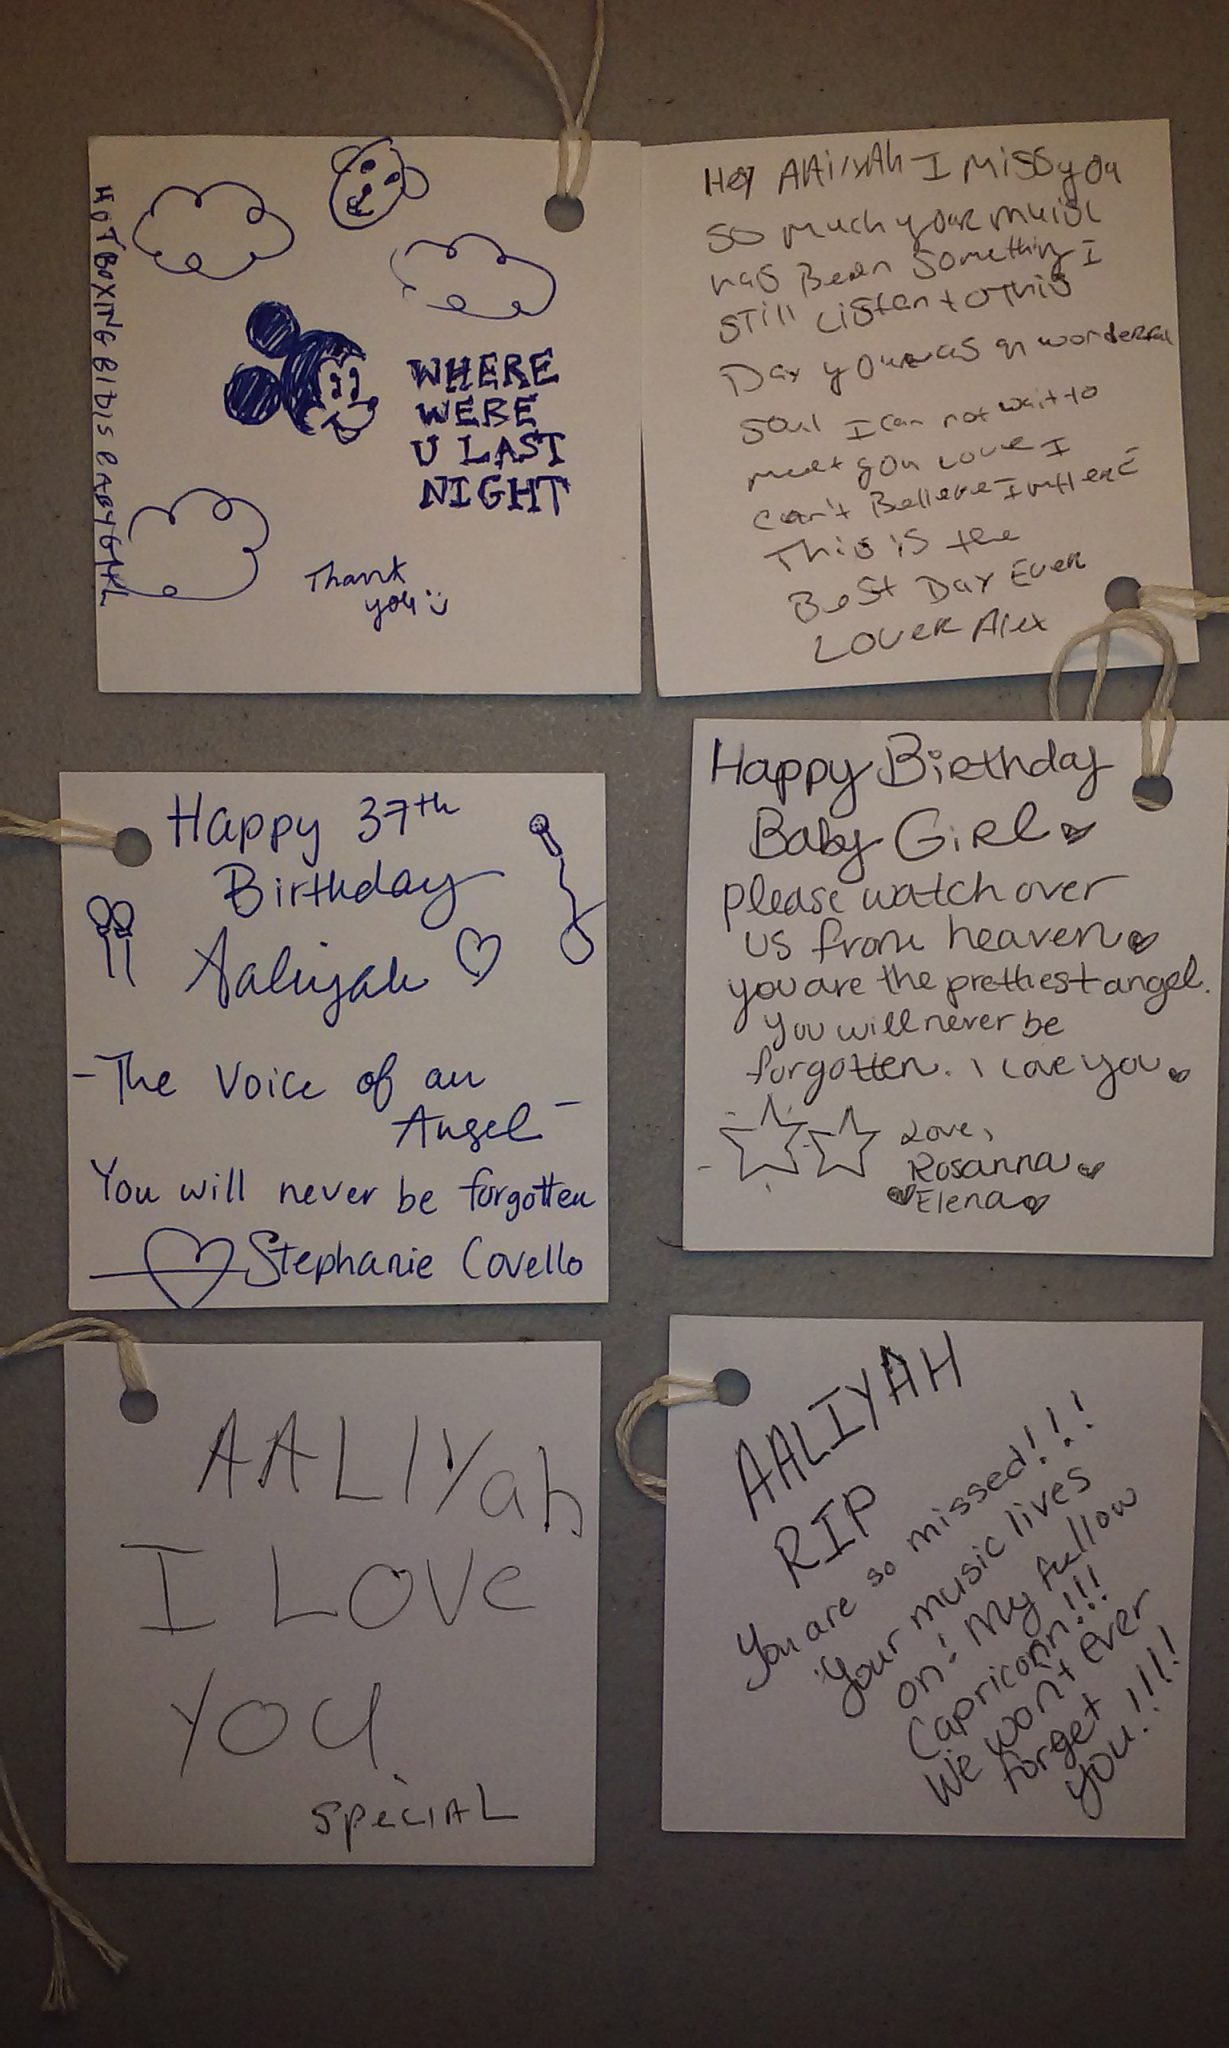 HOTBOXING BIDIS BABYGIRL
WHERE
WERE
U LAST
NIGHT
Thank
you
Hey AAliyAh I Miss you
so much your music
has Been something I
still Listen to this
Day you was an wonderful
soul I can not wait to
meet you Love I
can't Believe Im Here
This is the
BeSt DAY EVER
LOVER Alex
Happy 37th
Birthday
Aaliyah
-The Voice of an
Angel-
You will never be forgotten
Stephanie Covello
Happy Birthday
Baby GiRL
please watch over
us from heaven
you are the prettiest angel.
you will never be
forgotten. I love you
Love,
Rosanna
Elena
AALIYah
I LOVe
YOU
SpeciAL
AALIYAH
RIP
You are so missed!!!
Your music lives
on! My fellow
Capricorn!!!
We won't ever
forget
you!!!!